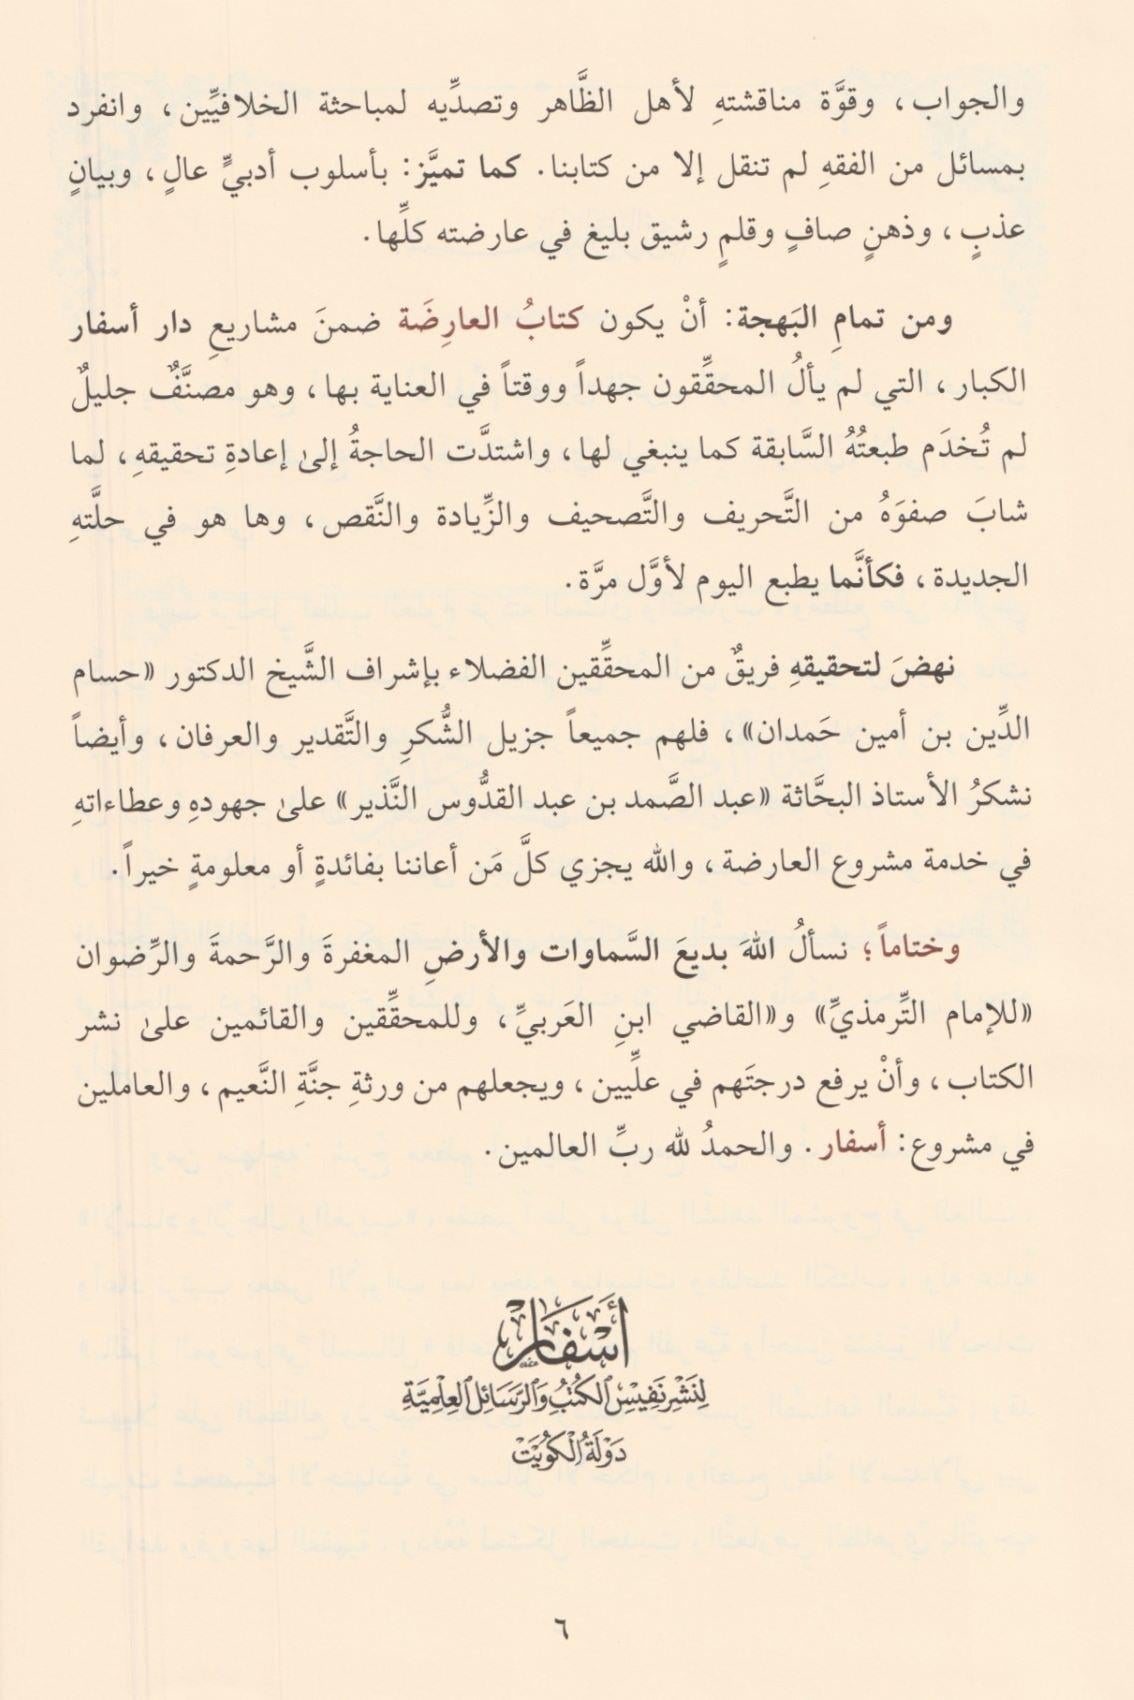 والجواب، وقوَّة مناقشتهِ لأهل الظَّاهر وتصدِّيه لمباحثة الخلافيِّين، وانفرد
بمسائل من الفقهِ لم تنقل إلا من كتابنا. كما تميَّز: بأسلوب أدبيٍّ عالٍ، وبيانٍ
عذبٍ، وذهنٍ صافٍ وقلمٍ رشيق بليغ في عارضته كلِّها.
ومن تمامِ البَهجة: أنْ يكون كتابُ العارِضَة ضمنَ مشاريعِ دار أسفار
الكبار، التي لم يألُ المحقِّقون جهداً ووقتاً في العناية بها، وهو مصنَّفٌ جليلٌ
لم تُخدَم طبعتُهُ السَّابقة كما ينبغي لها، واشتدَّت الحاجةُ إلىٰ إعادةِ تحقيقهِ، لما
شابَ صفوَهُ من التَّحريف والتَّصحيف والزِّيادة والنَّقص، وها هو في حلَّتهِ
الجديدة، فكأنَّما يطبع اليوم لأوَّل مرَّة.
نهضَ لتحقيقهِ فريقٌ من المحقِّقين الفضلاء بإشراف الشَّيخ الدكتور «حسام
الدِّين بن أمين حَمدان»، فلهم جميعاً جزيل الشُّكرِ والتَّقدير والعرفان، وأيضاً
نشكرُ الأستاذ البحَّاثة «عبد الصَّمد بن عبد القدُّوس النَّذير» علىٰ جهودهِ وعطاءاتهِ
في خدمة مشروع العارضة، والله يجزي كلَّ مَن أعاننا بفائدةٍ أو معلومةٍ خيراً.
وختاماً؛ نسألُ اللهَ بديعَ السَّماوات والأرضِ المغفرةَ والرَّحمةَ والرِّضوان
«للإمام التِّرمذيِّ» و«القاضي ابنِ العَربيِّ، وللمحقِّقين والقائمين علىٰ نشر
الكتاب، وأنْ يرفع درجتَهم في علِّيين، ويجعلهم من ورثةِ جنَّةِ النَّعيم، والعاملين
في مشروع: أسفار. والحمدُ لله ربِّ العالمين.
أَسْفَار
لِنَشْرِ نَفِيسِ الكُتُبِ وَالرَّسَائِلِ العِلْمِيَّةِ
دَوْلَةُ الْكُوَيْت
٦